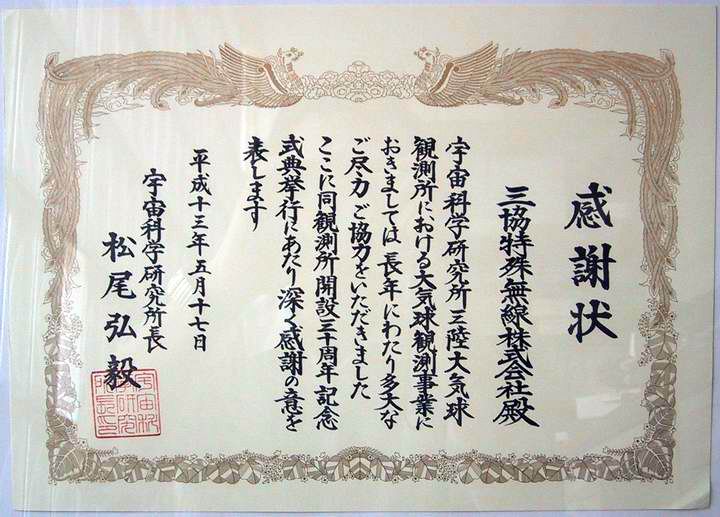 感謝状
三協特殊無線株式会社殿
宇宙科学研究所三陸大気球
観測所における大気球観測事業に
おきましては長年にわたり多大な
ご尽力ご協力をいただきました
ここに同観測所開設三十周年記念
式典挙行にあたり深く感謝の意を
表します
平成十三年五月十七日
宇宙科学研究所長
松尾弘毅